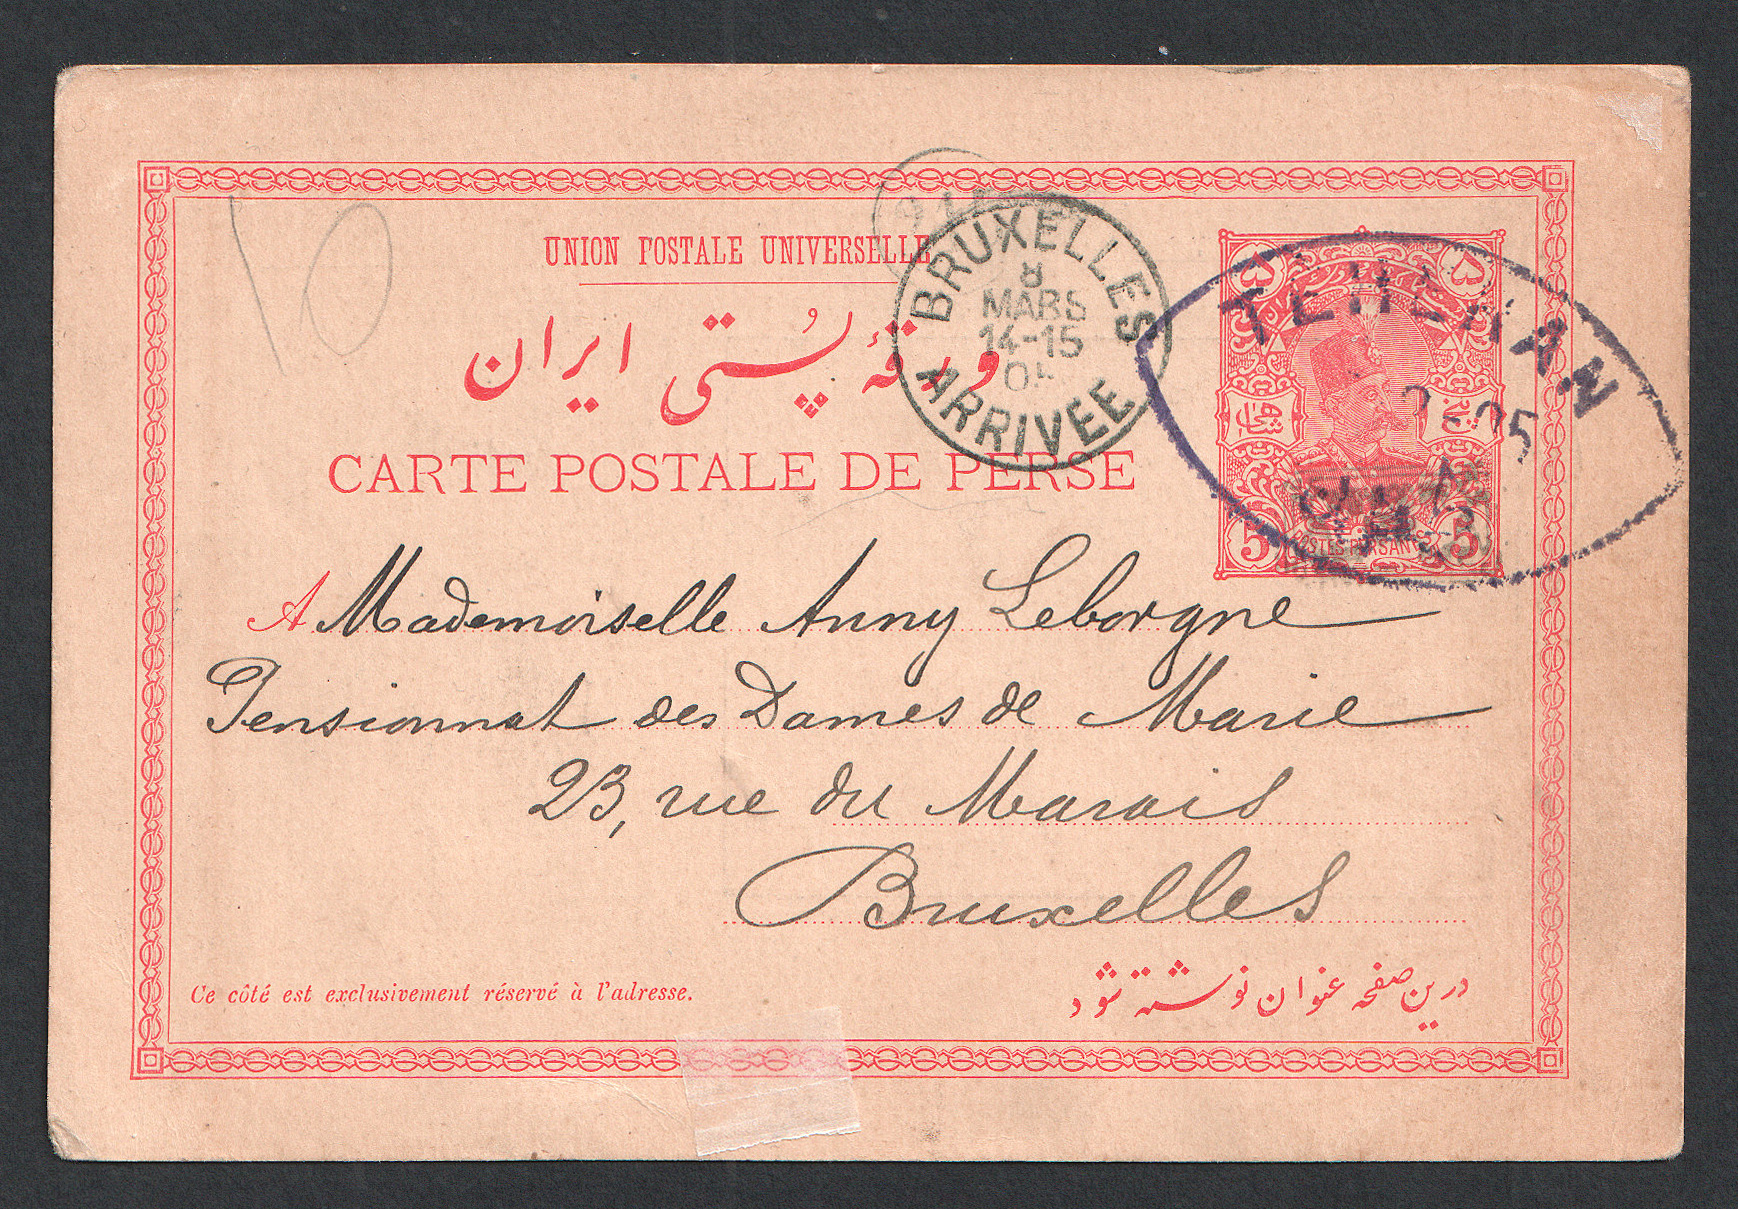 UNION POSTALE UNIVERSELLE
ورقهٔ پُستی ایران
CARTE POSTALE DE PERSE
BRUXELLES
8
MARS
14-15
ARRIVEE
TEHERAN
پنج
شاهی
5
POSTES PERSANES
5
A Mademoiselle Anny Leborgne
Pensionnat des Dames de Marie
23, rue du Marais
Bruxelles
Ce côté est exclusivement réservé à l'adresse.
درین صفحه عنوان نوشته شود